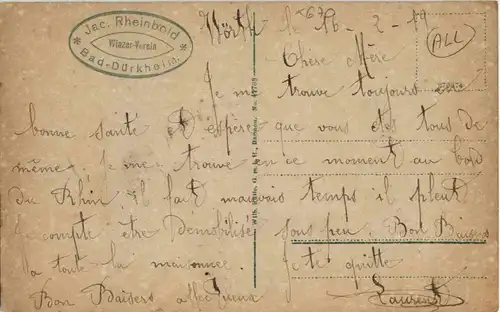 Jac. Rheinbold
Winzer-Verein
Bad-Dürkheim.
Wörth le 16-2-19
ALL
Chère Mère
Je me trouve toujours en
bonne santé et espère que vous etes tous de
même. Je me trouve en ce moment au bord
du Rhin, il fait mauvais temps il pleut
Je compte être démobilisé sous peu. Bon Baisers
a toute la maisonnée. Je te quitte
Bon Baisers affectueux Laurent